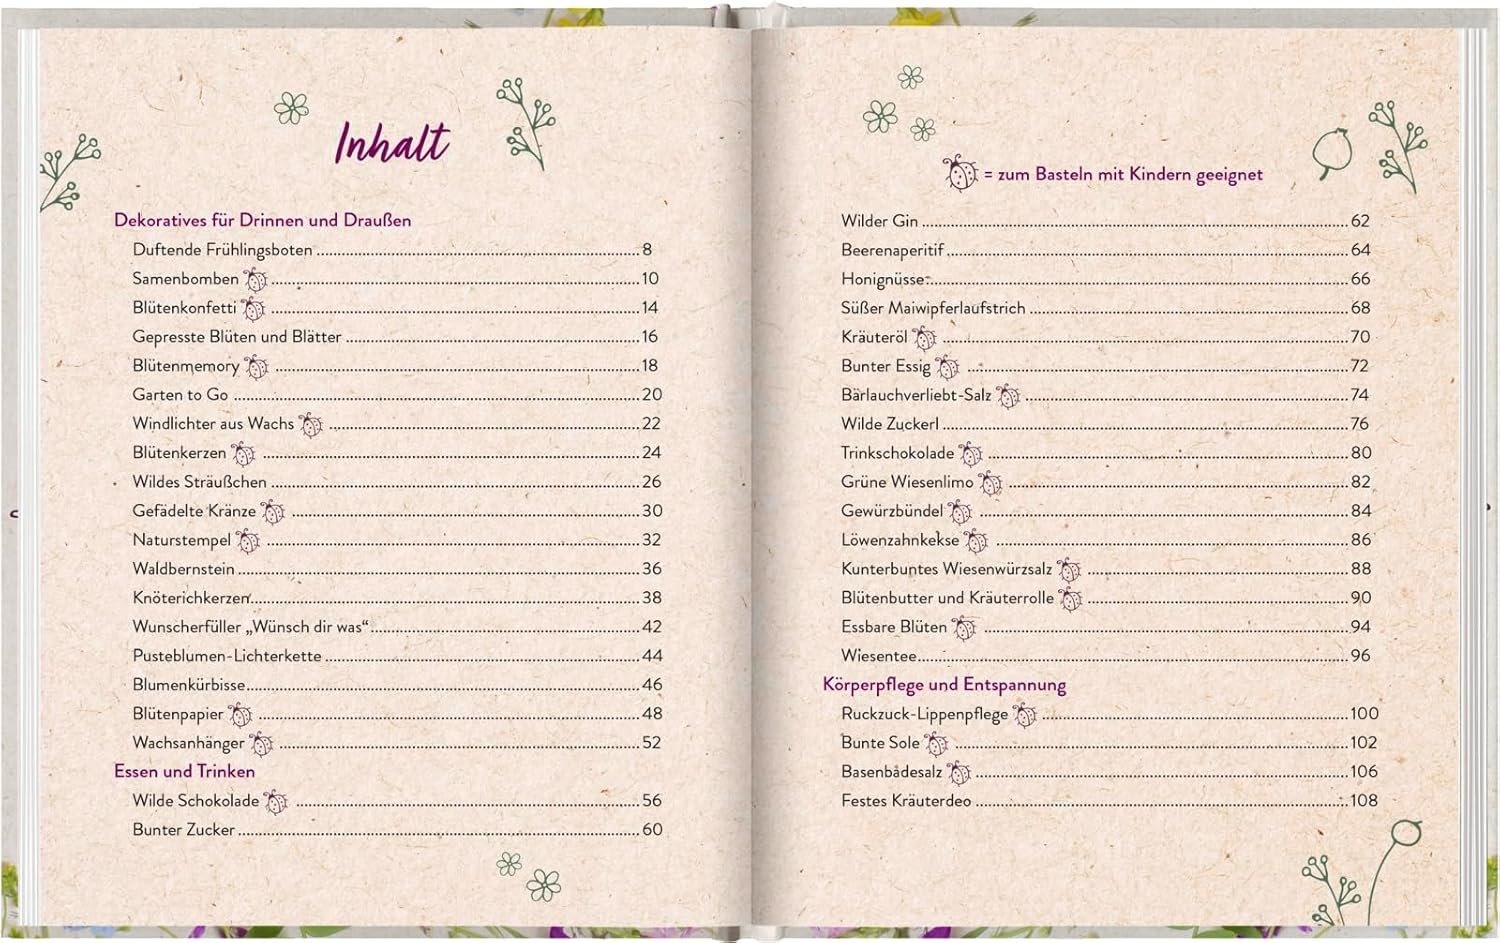 Inhalt
Dekoratives für Drinnen und Draußen
Duftende Frühlingsboten 8
Samenbomben 10
Blütenkonfetti 14
Gepresste Blüten und Blätter 16
Blütenmemory 18
Garten to Go 20
Windlichter aus Wachs 22
Blütenkerzen 24
Wildes Sträußchen 26
Gefädelte Kränze 30
Naturstempel 32
Waldbernstein 36
Knöterichkerzen 38
Wunscherfüller „Wünsch dir was“ 42
Pusteblumen-Lichterkette 44
Blumenkürbisse 46
Blütenpapier 48
Wachsanhänger 52
Essen und Trinken
Wilde Schokolade 56
Bunter Zucker 60
= zum Basteln mit Kindern geeignet
Wilder Gin 62
Beerenaperitif 64
Honignüsse 66
Süßer Maiwipferlaufstrich 68
Kräuteröl 70
Bunter Essig 72
Bärlauchverliebt-Salz 74
Wilde Zuckerl 76
Trinkschokolade 80
Grüne Wiesenlimo 82
Gewürzbündel 84
Löwenzahnkekse 86
Kunterbuntes Wiesenwürzsalz 88
Blütenbutter und Kräuterrolle 90
Essbare Blüten 94
Wiesentee 96
Körperpflege und Entspannung
Ruckzuck-Lippenpflege 100
Bunte Sole 102
Basenbadesalz 106
Festes Kräuterdeo 108